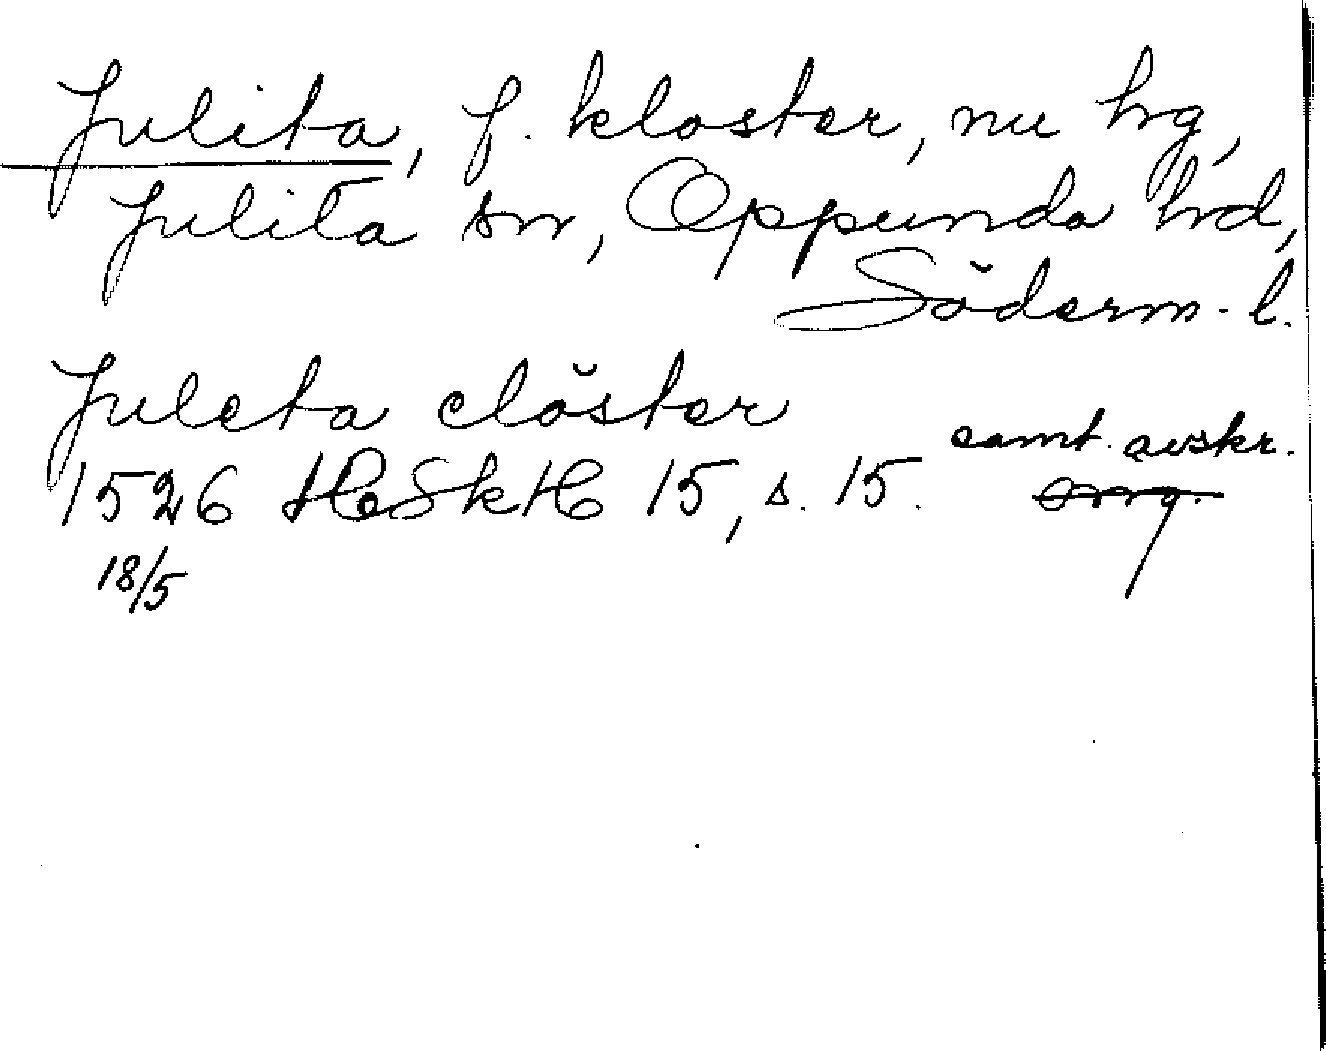 Julita, f. kloster, nu hrg,
Julita sn, Oppunda hrd,
Söderm. l.
Juleta clöster
samt. avskr.
1526 HSkH 15, s. 15. orig.
18/5